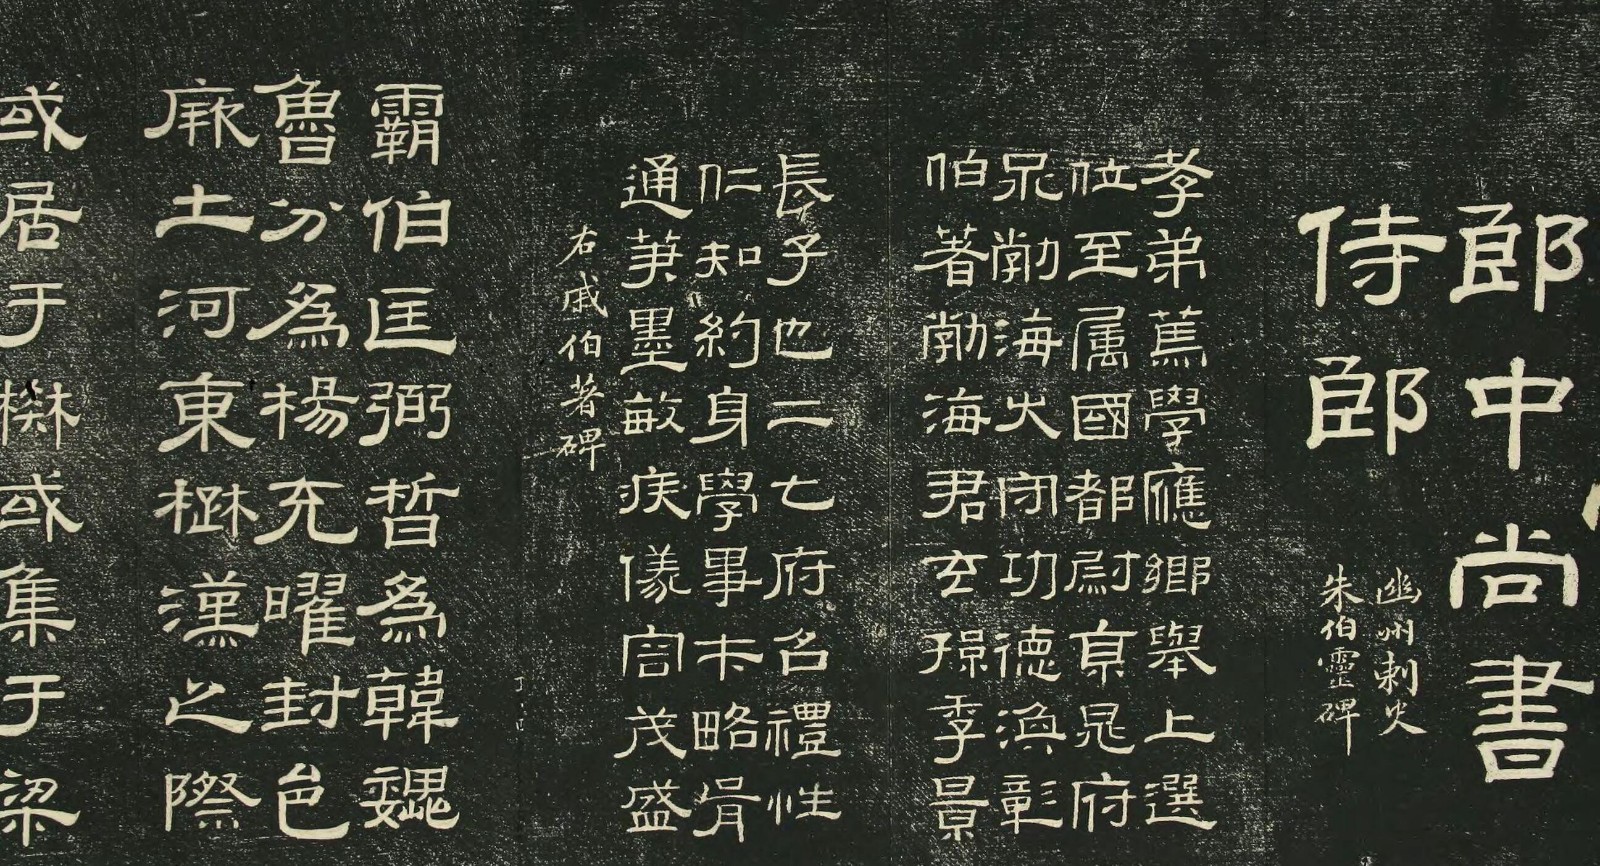 郎中尚書
侍郎
幽州刺史
朱伯靈碑
孝弟篤學應鄉舉上選
位至属國都尉京兆府
君勃海太守功德渙彰
伯著勃海君玄孫季景
長子也亡府名禮性
仁知約身學事略
通筆墨敏疾儀容茂盛
右戚伯著碑
霸伯匡弼晢為韓魏
魯分為楊充曜封邑
厥土河東楚漢之際
或居于樊或集于梁